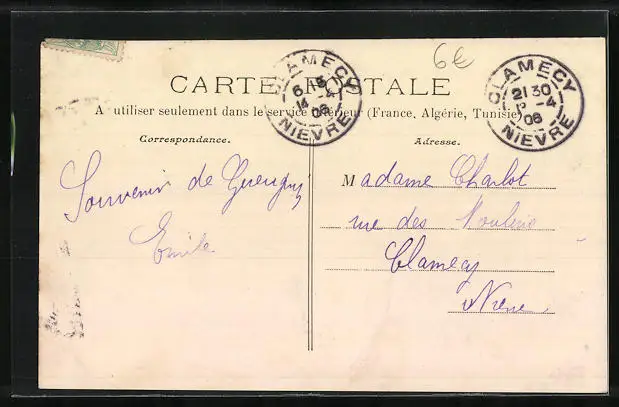 6€
CARTE POSTALE
A utiliser seulement dans le service intérieur (France, Algérie, Tunisie)
CLAMECY
6 15
14 -4
06
NIEVRE
CLAMECY
21 30
-4
06
NIEVRE
Correspondance.
Souvenir de Gueugny
Emile
Adresse.
Madame Charlot
rue des Moulins
Clamecy
Nièvre